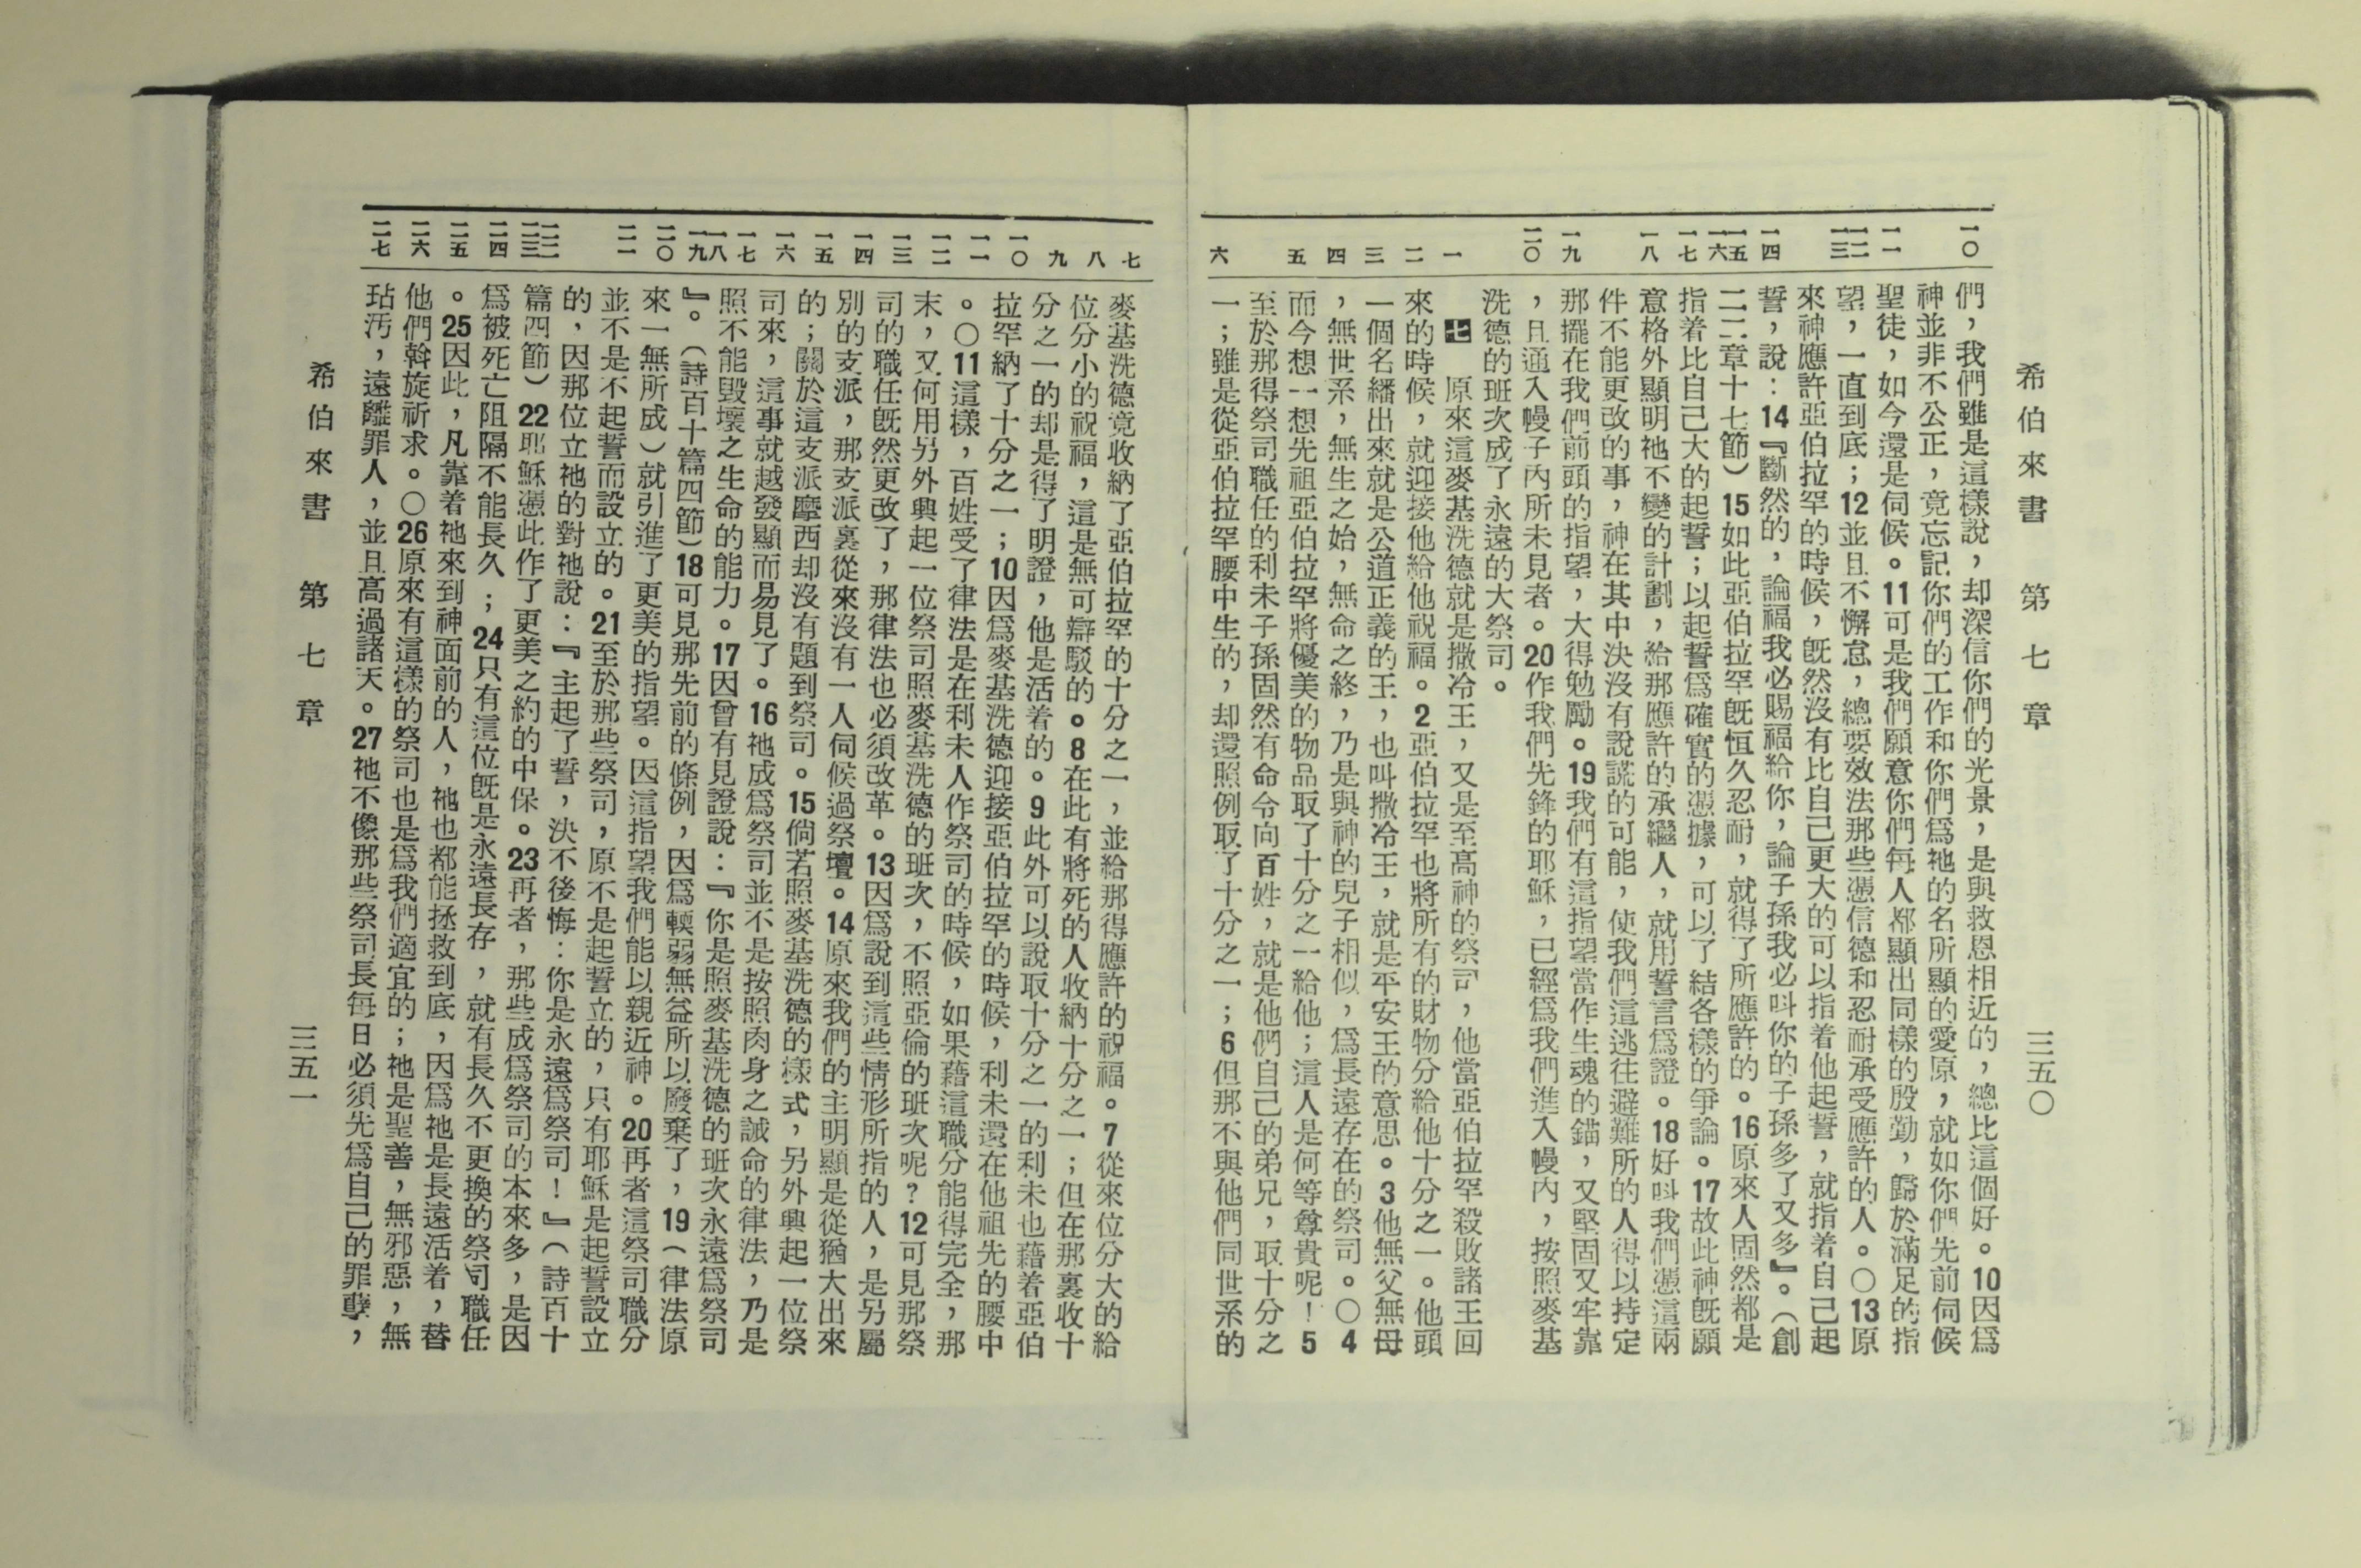 希伯來書 第七章 三五〇
一〇 一一 一二 一三 一四 一五 一六 一七 一八 一九 二〇 一 二 三 四 五 六
們，我們雖是這樣說，却深信你們的光景，是與救恩相近的，總比這個好。10因爲
神並非不公正，竟忘記你們的工作和你們爲祂的名所顯的愛原，就如你們先前伺候
聖徒，如今還是伺候。11可是我們願意你們每人都顯出同樣的殷勤，歸於滿足的指
望，一直到底；12並且不懈怠，總要效法那些憑信德和忍耐承受應許的人。〇13原
來神應許亞伯拉罕的時候，旣然沒有比自己更大的可以指着他起誓，就指着自己起
誓，說：14『斷然的，論福我必賜福給你，論子孫我必呌你的子孫多了又多』。（創
二二章十七節）15如此亞伯拉罕旣恒久忍耐，就得了所應許的。16原來人固然都是
指着比自己大的起誓；以起誓爲確實的憑據，可以了結各樣的爭論。17故此神旣願
意格外顯明祂不變的計劃，給那應許的承繼人，就用誓言爲證。18好呌我們憑這兩
件不能更改的事，神在其中決沒有說謊的可能，使我們這逃往避難所的人得以持定
那擺在我們前頭的指望，大得勉勵。19我們有這指望當作生魂的錨，又堅固又牢靠
，且通入幔子內所未見者。20作我們先鋒的耶穌，已經爲我們進入幔內，按照麥基
洗德的班次成了永遠的大祭司。
七 原來這麥基洗德就是撒冷王，又是至高神的祭司，他當亞伯拉罕殺敗諸王回
來的時候，就迎接他給他祝福。2亞伯拉罕也將所有的財物分給他十分之一。他頭
一個名繙出來就是公道正義的王，也叫撒冷王，就是平安王的意思。3他無父無母
，無世系，無生之始，無命之終，乃是與神的兒子相似，爲長遠存在的祭司。〇4
而今想一想先祖亞伯拉罕將優美的物品取了十分之一給他；這人是何等尊貴呢！5
至於那得祭司職任的利未子孫固然有命令向百姓，就是他們自己的弟兄，取十分之
一；雖是從亞伯拉罕腰中生的，却還照例取了十分之一；6但那不與他們同世系的
七 八 九 一〇 一一 一二 一三 一四 一五 一六 一七 一八 一九 二〇 二一 二二 二三 二四 二五 二六 二七
麥基洗德竟收納了亞伯拉罕的十分之一，並給那得應許的祝福。7從來位分大的給
位分小的祝福，這是無可辯駁的。8在此有將死的人收納十分之一；但在那裏收十
分之一的却是得了明證，他是活着的。9此外可以說取十分之一的利未也藉着亞伯
拉罕納了十分之一；10因爲麥基洗德迎接亞伯拉罕的時候，利未還在他祖先的腰中
。〇11這樣，百姓受了律法是在利未人作祭司的時候，如果藉這職分能得完全，那
末，又何用另外興起一位祭司照麥基洗德的班次，不照亞倫的班次呢？12可見那祭
司的職任旣然更改了，那律法也必須改革。13因爲說到這些情形所指的人，是另屬
別的支派，那支派裏從來沒有一人伺候過祭壇。14原來我們的主明顯是從猶大出來
的；關於這支派摩西却沒有題到祭司。15倘若照麥基洗德的樣式，另外興起一位祭
司來，這事就越發顯而易見了。16祂成爲祭司並不是按照肉身之誡命的律法，乃是
照不能毀壞之生命的能力。17因曾有見證說：『你是照麥基洗德的班次永遠爲祭司
』。（詩百十篇四節）18可見那先前的條例，因爲輭弱無益所以廢棄了，19（律法原
來一無所成）就引進了更美的指望。因這指望我們能以親近神。20再者這祭司職分
並不是不起誓而設立的。21至於那些祭司，原不是起誓立的，只有耶穌是起誓設立
的，因那位立祂的對祂說：『主起了誓，決不後悔：你是永遠爲祭司！』（詩百十
篇四節）22耶穌憑此作了更美之約的中保。23再者，那些成爲祭司的本來多，是因
爲被死亡阻隔不能長久；24只有這位旣是永遠長存，就有長久不更換的祭司職任
。25因此，凡靠着祂來到神面前的人，祂也都能拯救到底，因爲祂是長遠活着，替
他們斡旋祈求。〇26原來有這樣的祭司也是爲我們適宜的；祂是聖善，無邪惡，無
玷汚，遠離罪人，並且高過諸天。27祂不像那些祭司長每日必須先爲自己的罪孽，
希伯來書 第七章 三五一